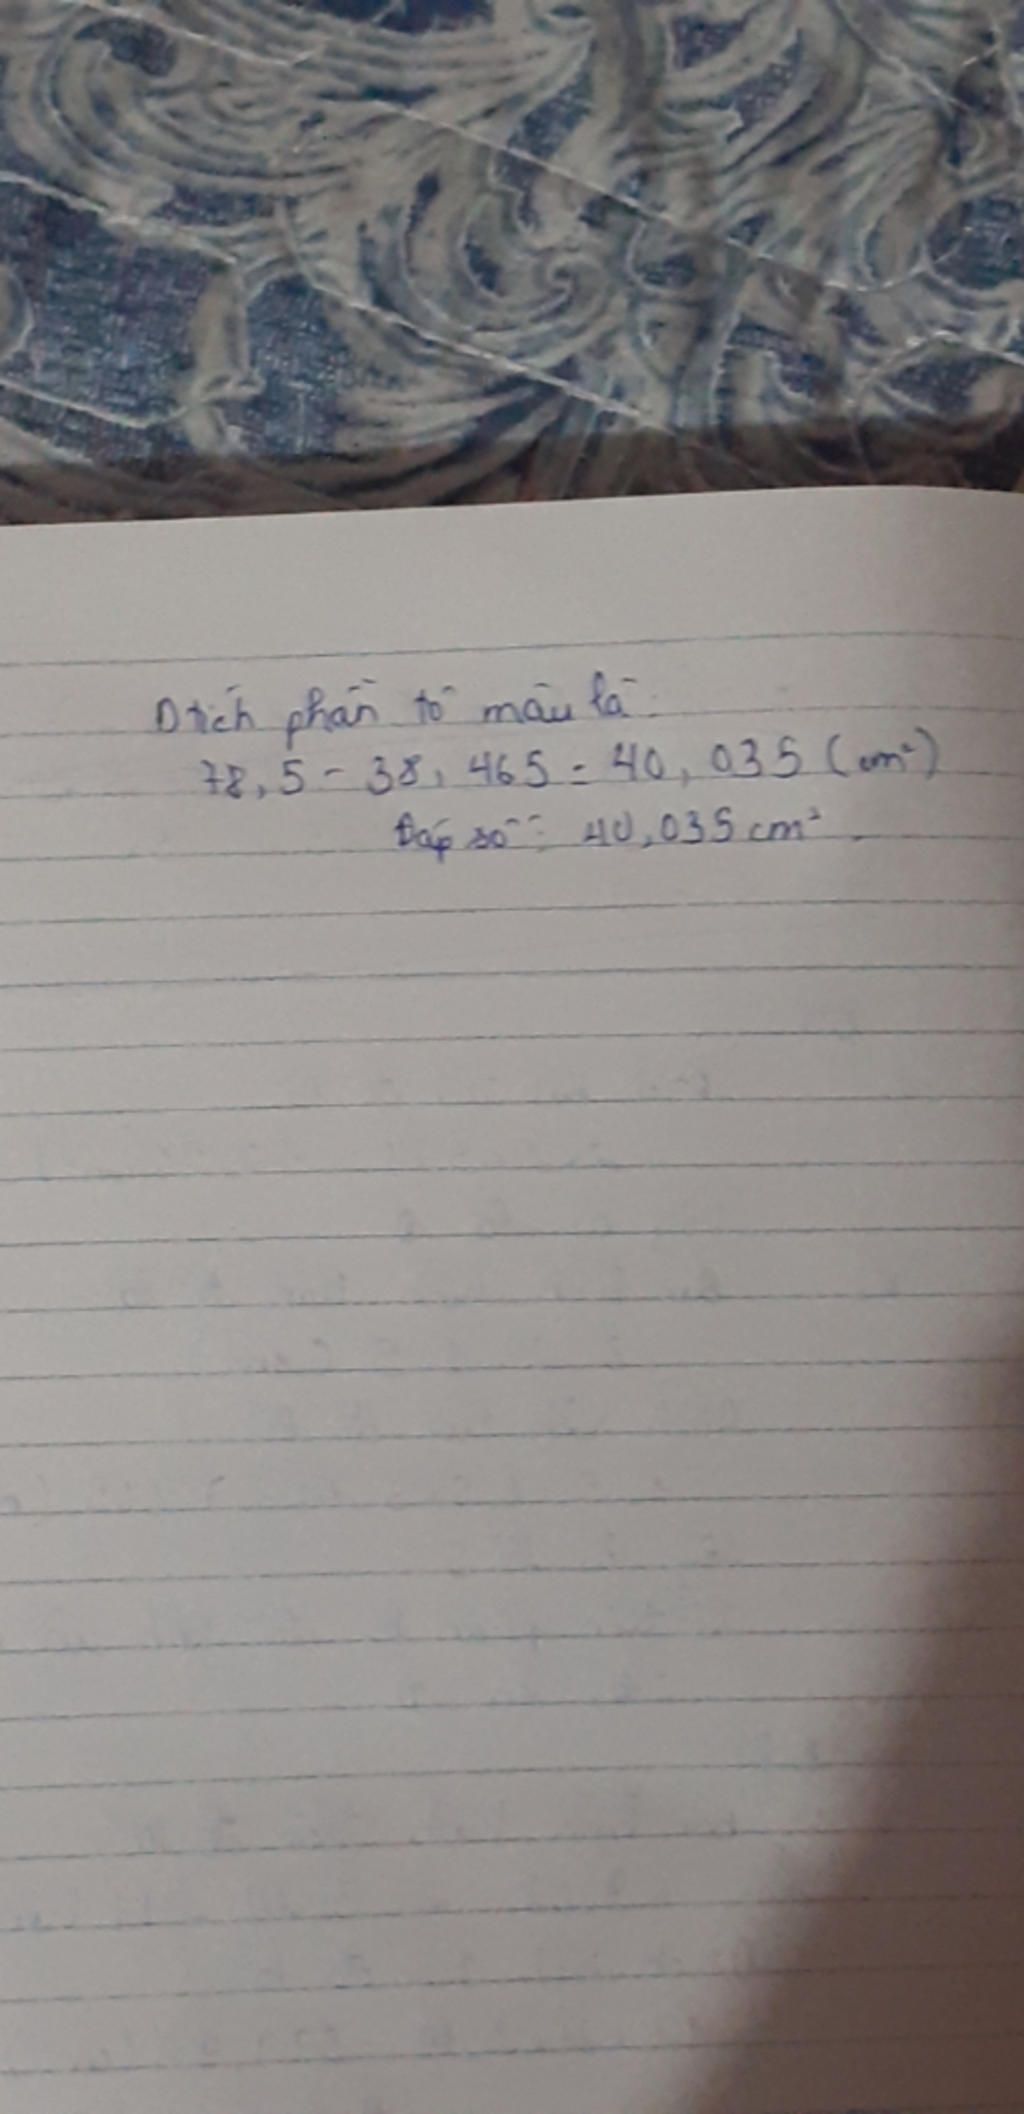 Dtích phần tô màu là:
78,5 - 38,465 = 40,035 (cm²)
Đáp số: 40,035 cm².